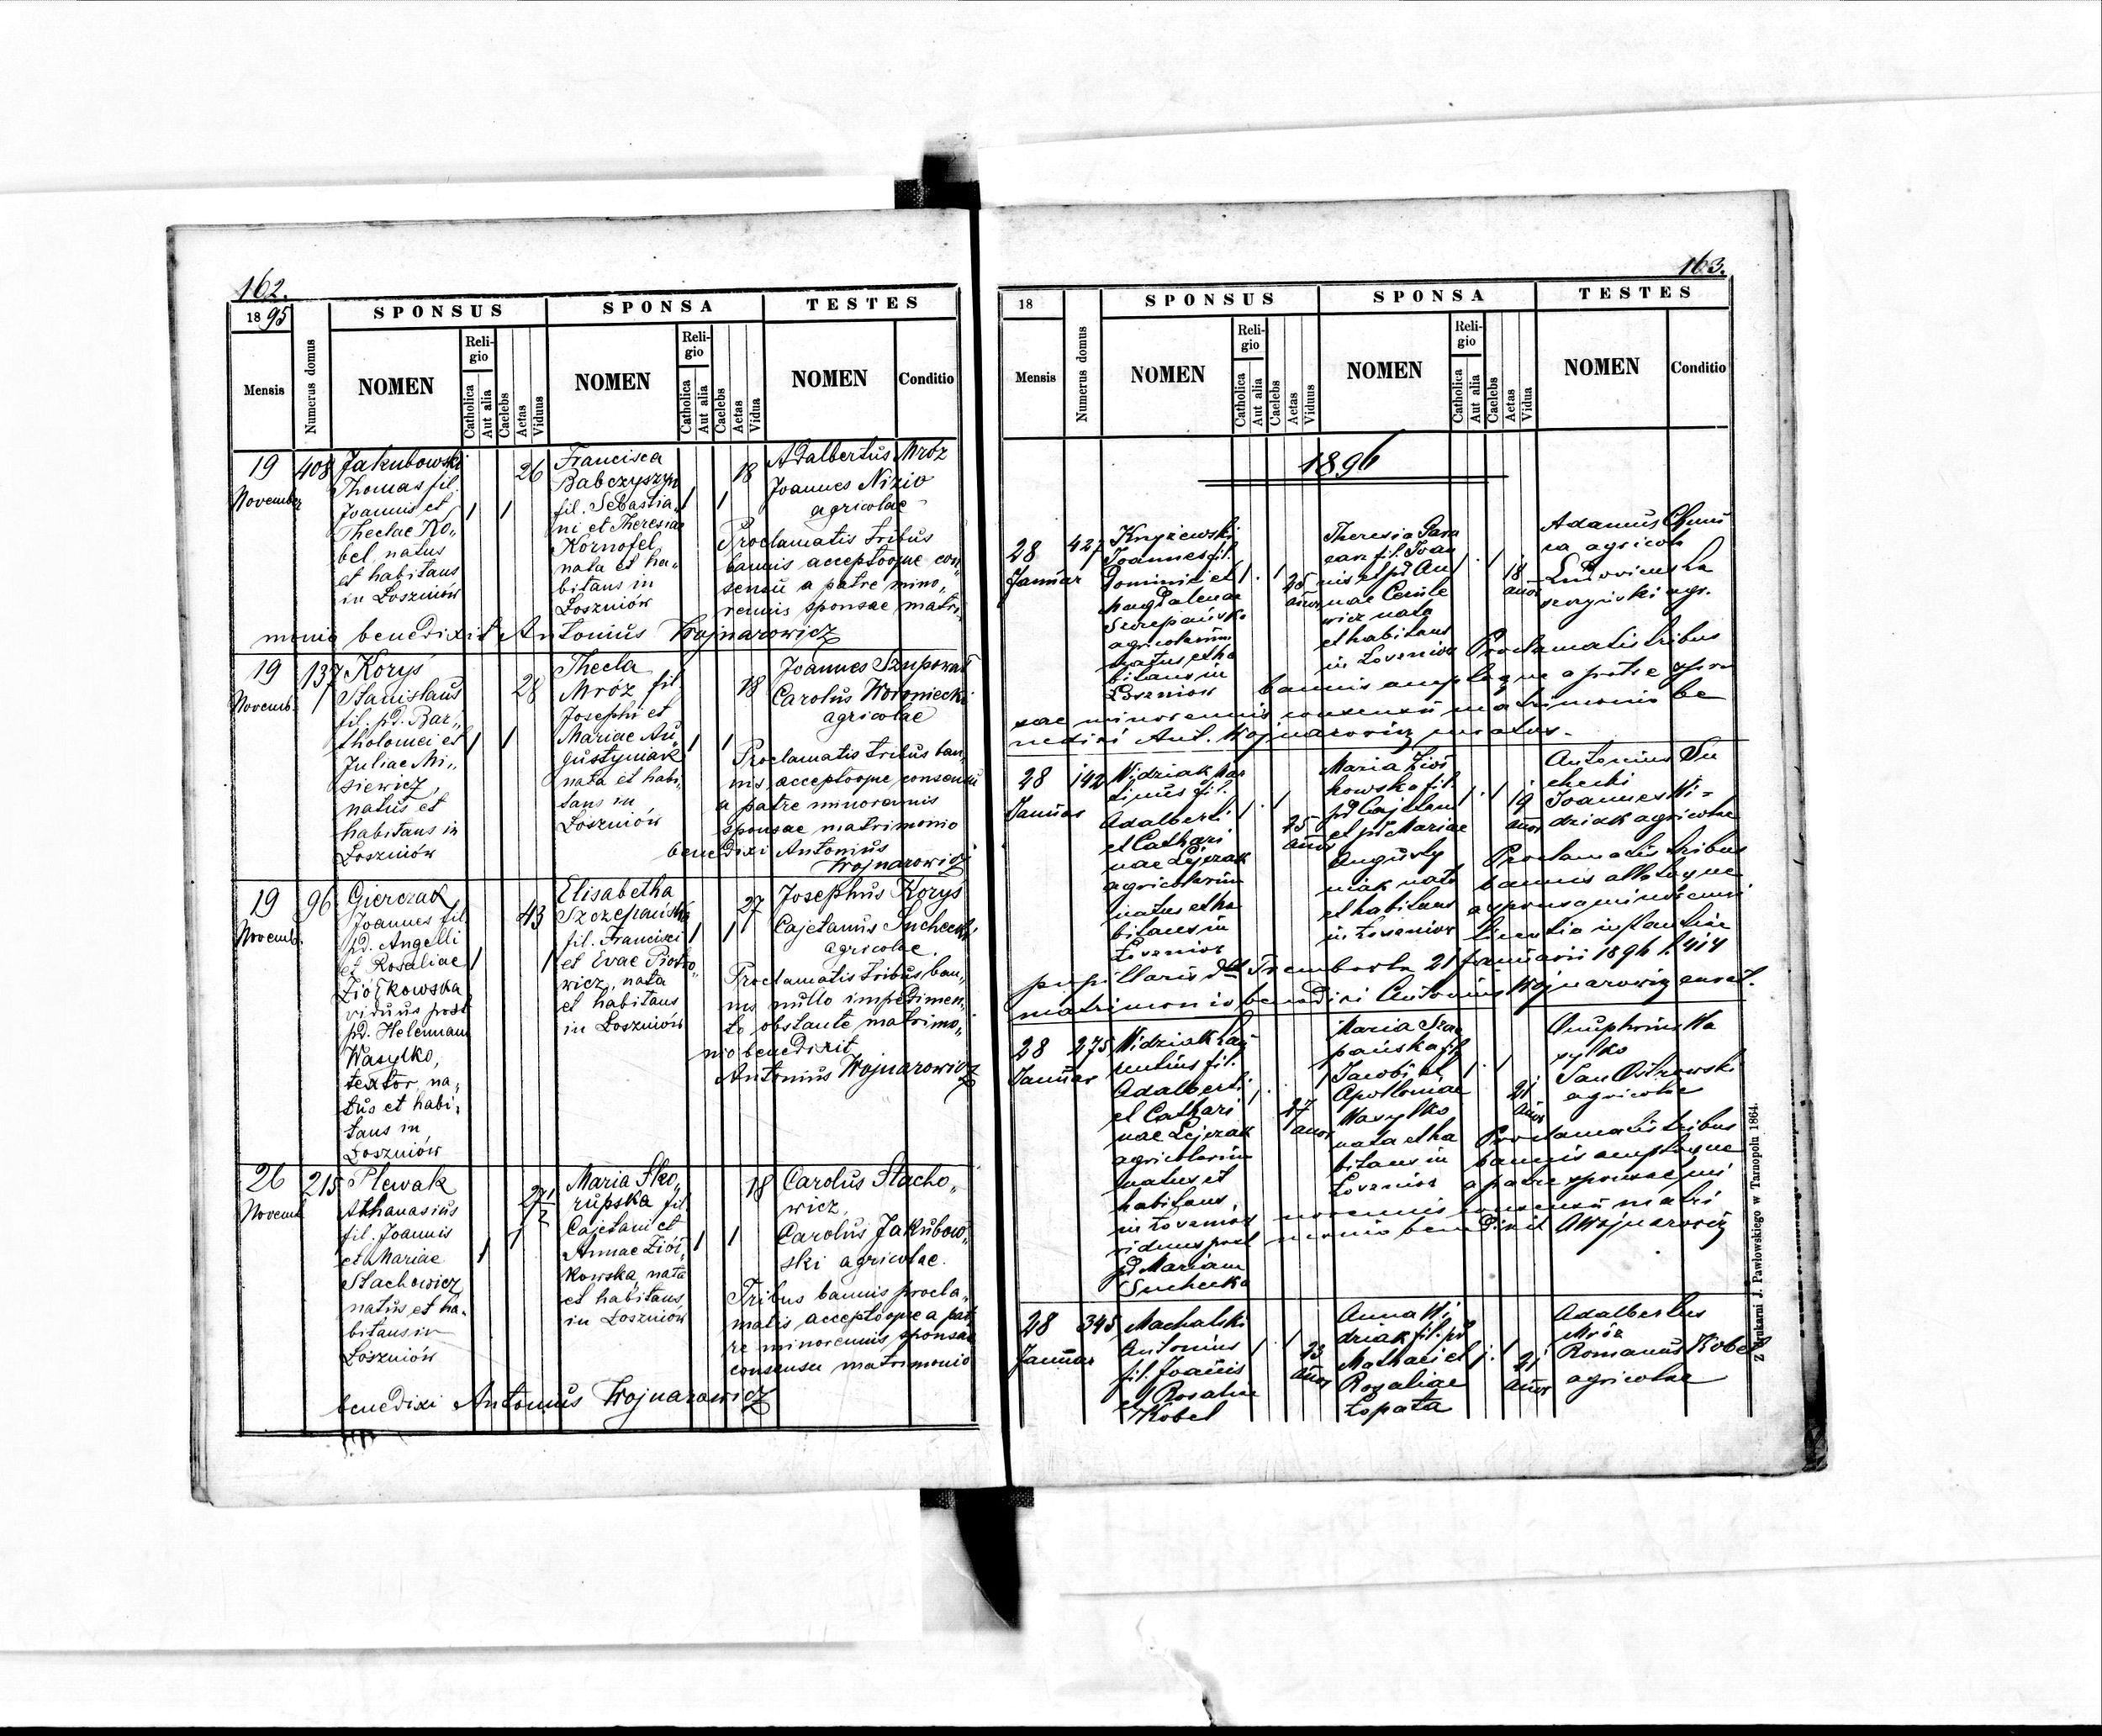 162.
1895
SPONSUS
SPONSA
TESTES
Mensis
Numerus domus
NOMEN
Religio
Catholica
Aut alia
Caelebs
Aetas
Viduus
NOMEN
Religio
Catholica
Aut alia
Caelebs
Aetas
Vidua
NOMEN
Conditio
19
November
408
Jakubowski
Thomas fil.
Joannis et
Theclae Ko„
bel, natus
et habitans
in Łoszniów
26
Francisca
Babczyszyn
fil. Sebastia„
ni et Theresiae
Kornofel
nata et ha„
bitans in
Łoszniów
18
Adalbertus Mróz
Joannes Nizio
agricolae
Proclamatis tribus
bannis acceptoque con„
sensu a patre mino„
rennis sponsae matri„
monio benedixit Antonius Wojnarowicz
19
Novemb.
137
Koryś
Stanislaus
fil. pd. Bar„
tholomei et
Juliae Mi„
siewicz,
natus et
habitans in
Łoszniów
28
Thecla
Mróz fil.
Josephi et
Mariae Au„
gustyniak
nata et habi„
tans in
Łoszniów
18
Joannes
Carolus Woroniecki
agricolae
Proclamatis tribus ban„
nis, acceptoque consensu
a patre minorennis
sponsae matrimonio
benedixi Antonius
Wojnarowicz
19
Novemb.
96
Gierczak
Joannes fil.
pd. Angelli
et Rosaliae
Ziółkowska
viduus post
pd. Helennam
Wasylko,
textor, na„
tus et habi„
tans in
Łoszniów
43
Elisabetha
Szczepańska
fil. Francisci
et Evae Piotro„
wicz, nata
et habitans
in Łoszniów
27
Josephus Koryś
Cajetanus Suchecki
agricolae.
Proclamatis tribus ban„
nis nullo impedimen„
to obstante matrimo„
nio benedixit
Antonius Wojnarowicz
26
Novemb
215
Plewak
Athanasius
fil. Joannis
et Mariae
Stachowicz
natus et ha„
bitans in
Łoszniów
27 1/2
Maria Sko„
rupska fil.
Cajetani et
Annae Ziół„
kowska, nata
et habitans
in Łoszniów
18
Carolus Stacho„
wicz,
Carolus Jakubow„
ski agricolae.
Tribus bannis procla„
matis acceptoque a pat„
re minorennis sponsae
consensu matrimonio
benedixi Antonius Wojnarowicz
163.
18
SPONSUS
SPONSA
TESTES
Mensis
Numerus domus
NOMEN
Religio
Catholica
Aut alia
Caelebs
Aetas
Viduus
NOMEN
Religio
Catholica
Aut alia
Caelebs
Aetas
Vidua
NOMEN
Conditio
1896
28
Januar
427
Knyżewski
Joannes fil.
Dominici et
Magdalenae
Szczepańska
agricolarum
natus et ha
bitans in
Łoszniów
25
anor
Theresia
fil. Joan
nis et pd An
nae
wicz nata
et habitans
in Łoszniów
18
anor
Adamus
agricola
Ludovicus
agr.
Proclamatis tribus
bannis acceptoque a patre spon
sae minorennis consensu matrimonio be
nedixi Ant. Wojnarowicz curatus.
28
Januar
142
Widziak Mar
tinus fil.
Adalberti
et Cathari
nae Lejczak
agricolarum
natus et ha
bitans in
Łoszniów
25
anor
Maria Ziół
kowska fil.
pd Cajetani
et pd Mariae
Augusty
niak nata
et habitans
in Łoszniów
19
anor
Antonius Su
checki
Joannes Wi=
dziak agricolae
Proclamatis tribus
bannis allatoque
a sponsa minorenni
licentia instantiae
pupillaris dd Trembowla 21 Januarii 1896 l. 414
matrimonio benedixi Antonius Wojnarowicz curat.
28
Januar
275
Widziak Lau
rentius fil.
Adalberti
et Cathari
nae Lejczak
agricolarum
natus et
habitans
in Łoszniów
viduus post
pd Mariam
Suchecka
27
anor
Maria Szcze
pańska fil.
Jacobi et
Apolloniae
Wasylko
nata et ha
bitans in
Łoszniów
21
anor
Onuphrius Wa
sylko
Jan Ostrowski
agricolae
Proclamatis tribus
bannis acceptoque
a patre sponsae mi
norennis consensu matri
monio benedixit AWojnarowicz
28
Januar
345
Machalski
Antonius
fil. Joannis
et Rosaliae
Kobel
23
anor
Anna Wi
dziak fil. pd
Mathaei et
Rozaliae
Łopata
21
anor
Adalbertus
Mróz
Romanus Kobel
agricolae
Z drukarni J. Pawłowskiego w Tarnopolu 1864.